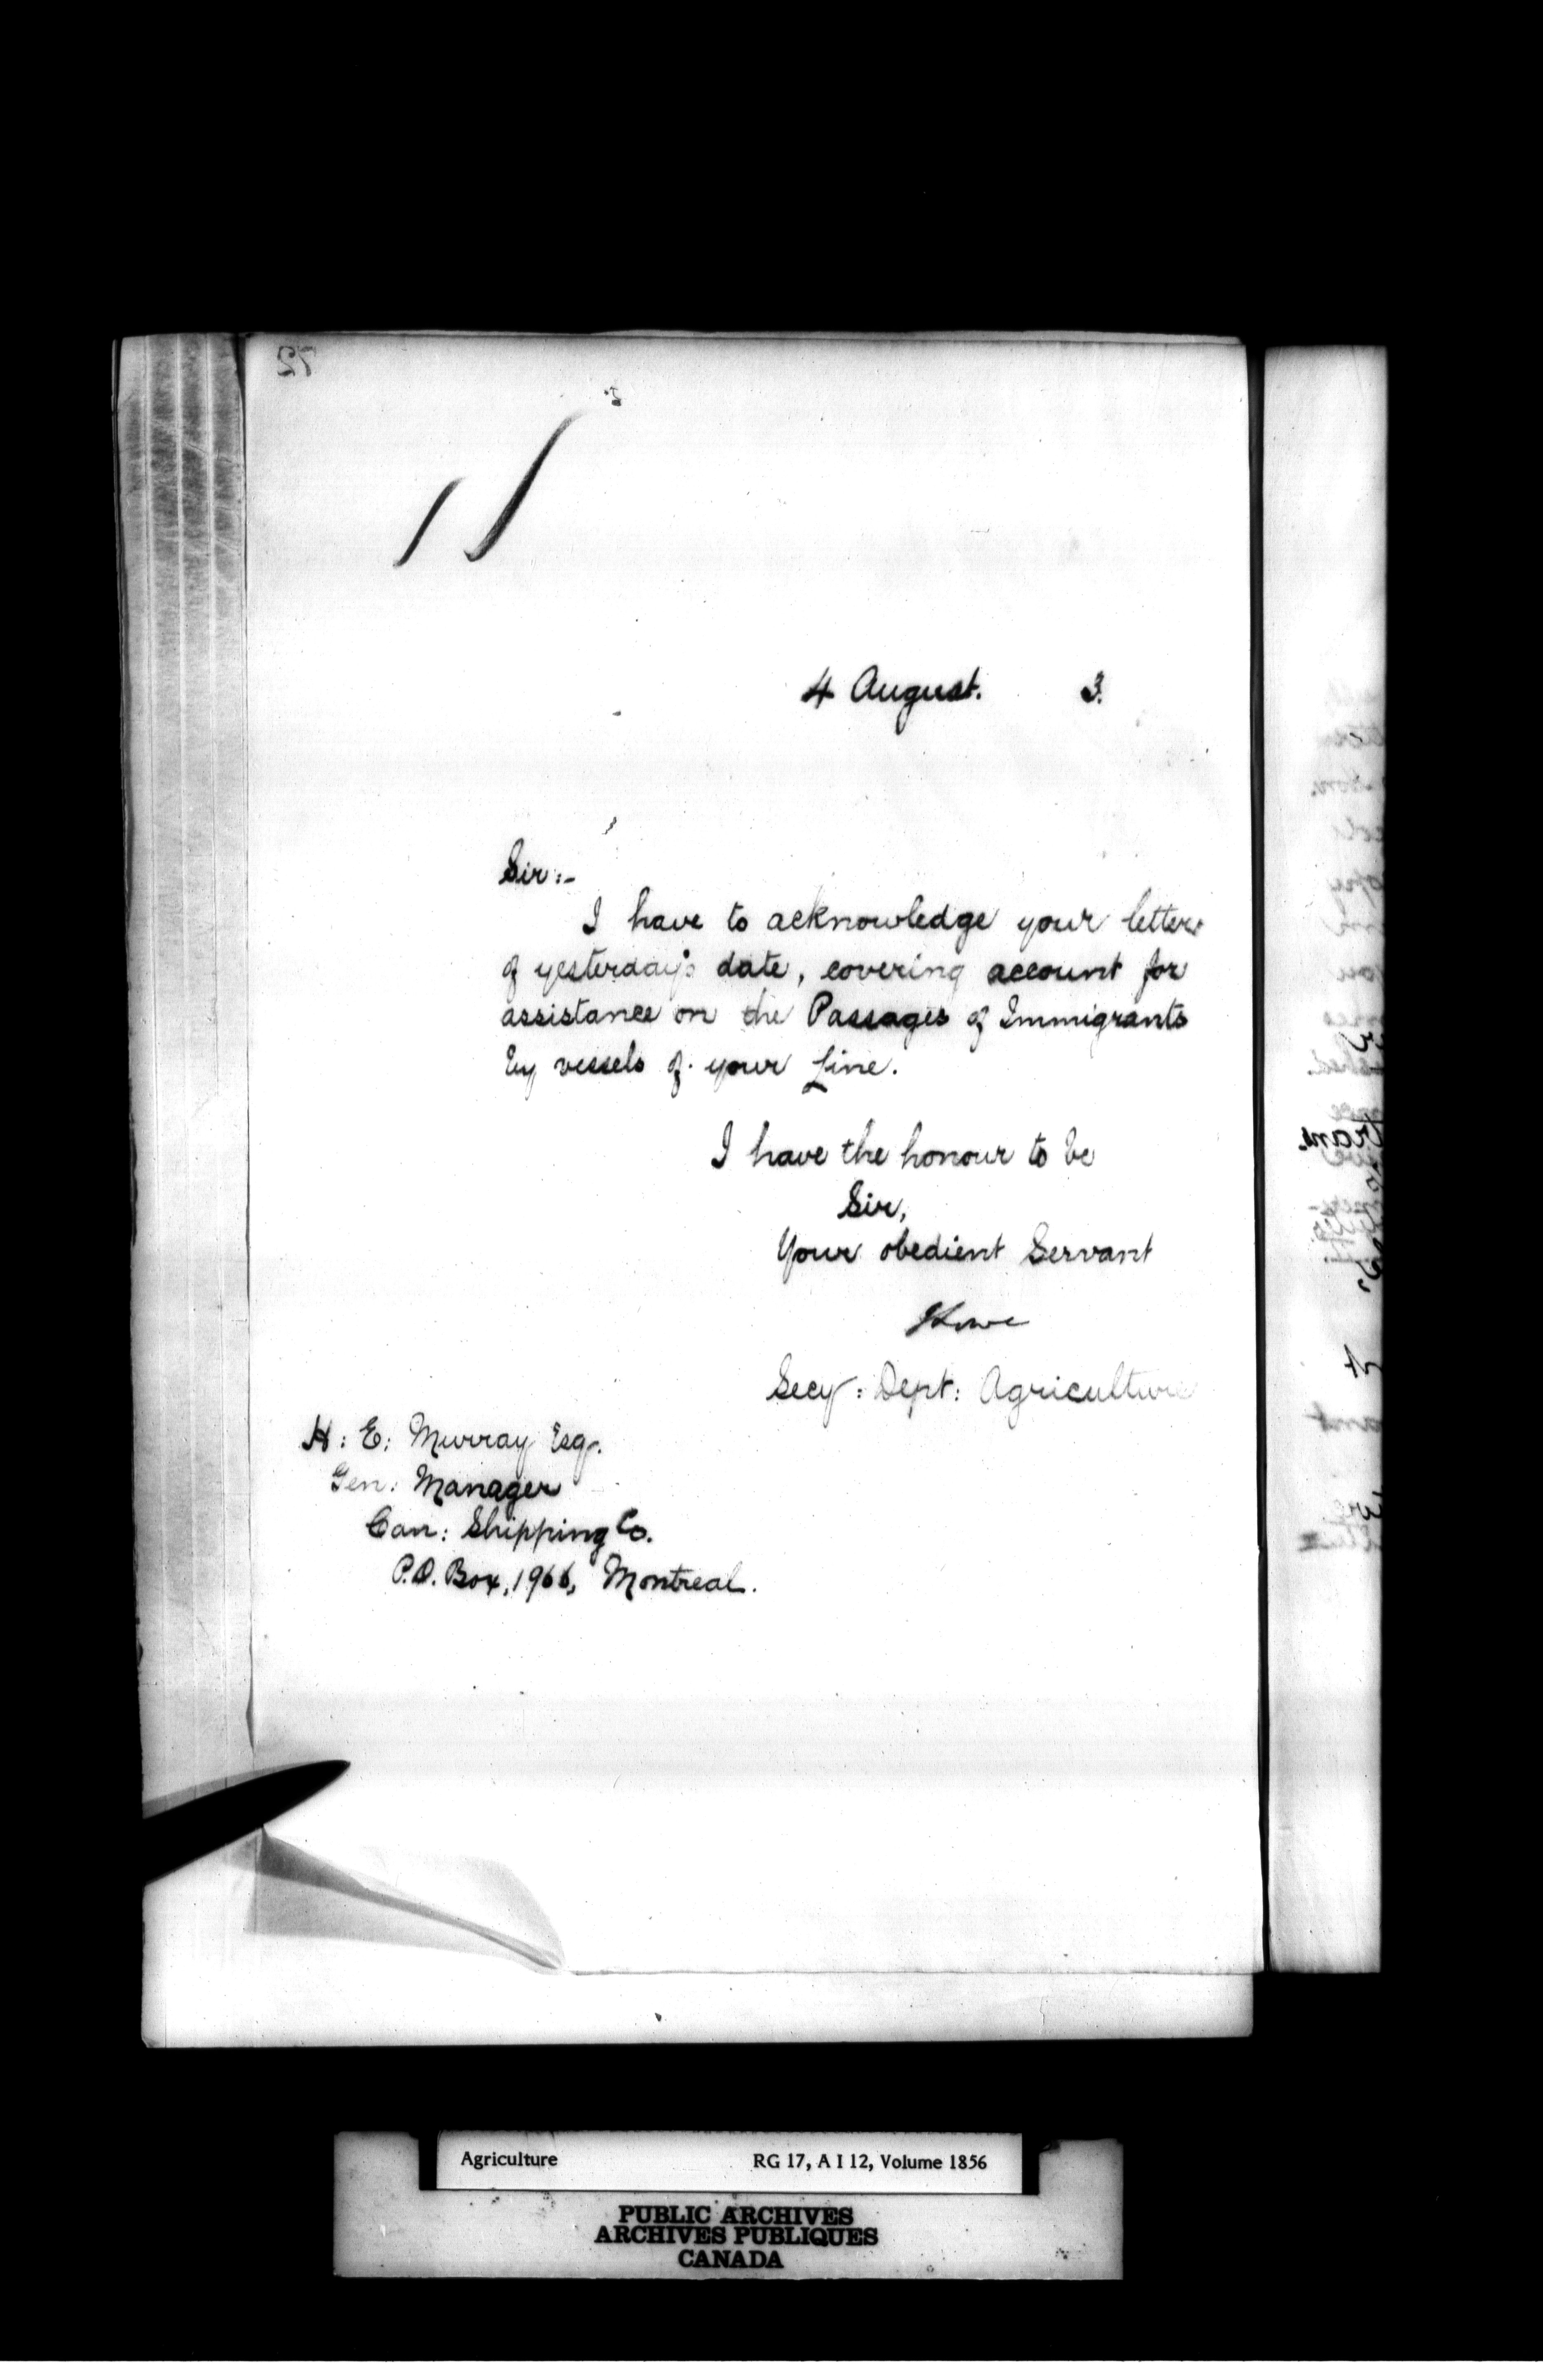 72
4 August. 3.
Sir:-
I have to acknowledge your letter
of yesterday's date, covering account for
assistance on the Passages of Immigrants
by vessels of your Line.
I have the honour to be
Sir,
Your obedient Servant
Secy: Dept: Agriculture
H: E: Murray Esq.
Gen: Manager
Can: Shipping Co.
P.O. Box, 1966, Montreal.
Agriculture RG 17, A I 12, Volume 1856
PUBLIC ARCHIVES
ARCHIVES PUBLIQUES
CANADA